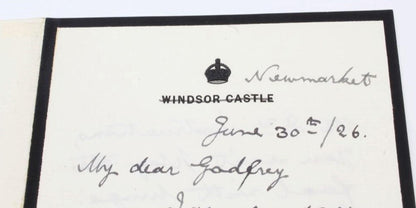 Newmarket
WINDSOR CASTLE
June 30th/26.
My dear Godfrey